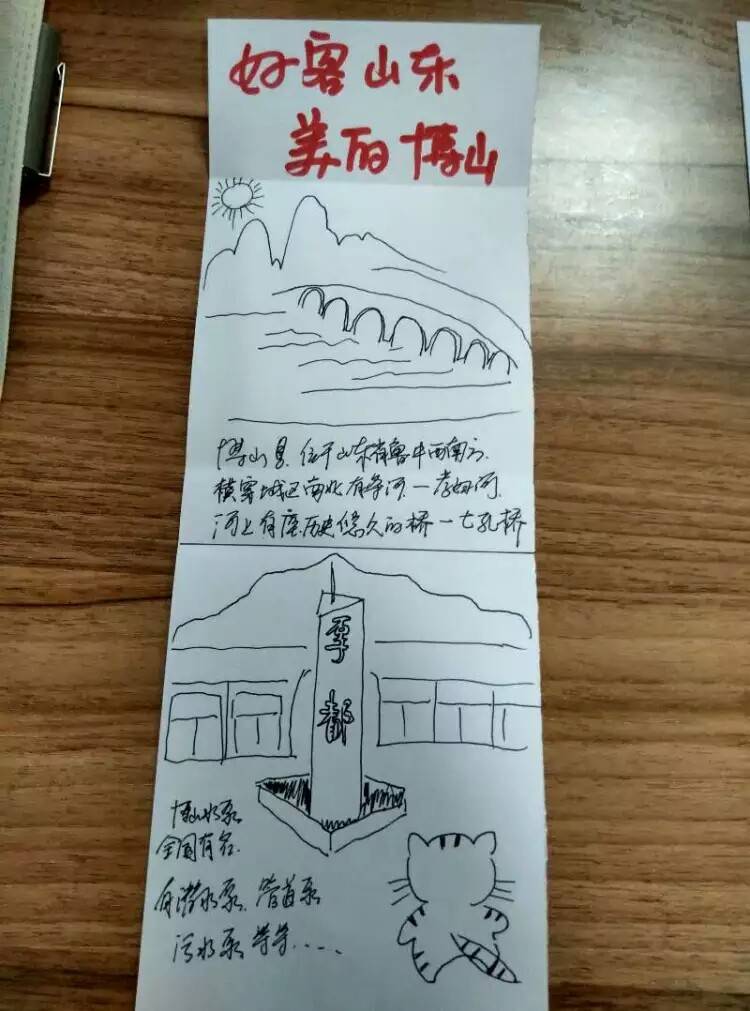 好客山东
美丽博山
博山县,位于山东省鲁中西南方,
横穿城区南北有条河一孝妇河,
河上有座历史悠久的桥一七孔桥
孝
都
博山水泵
全国有名.
有潜水泵、管道泵
污水泵等等.....